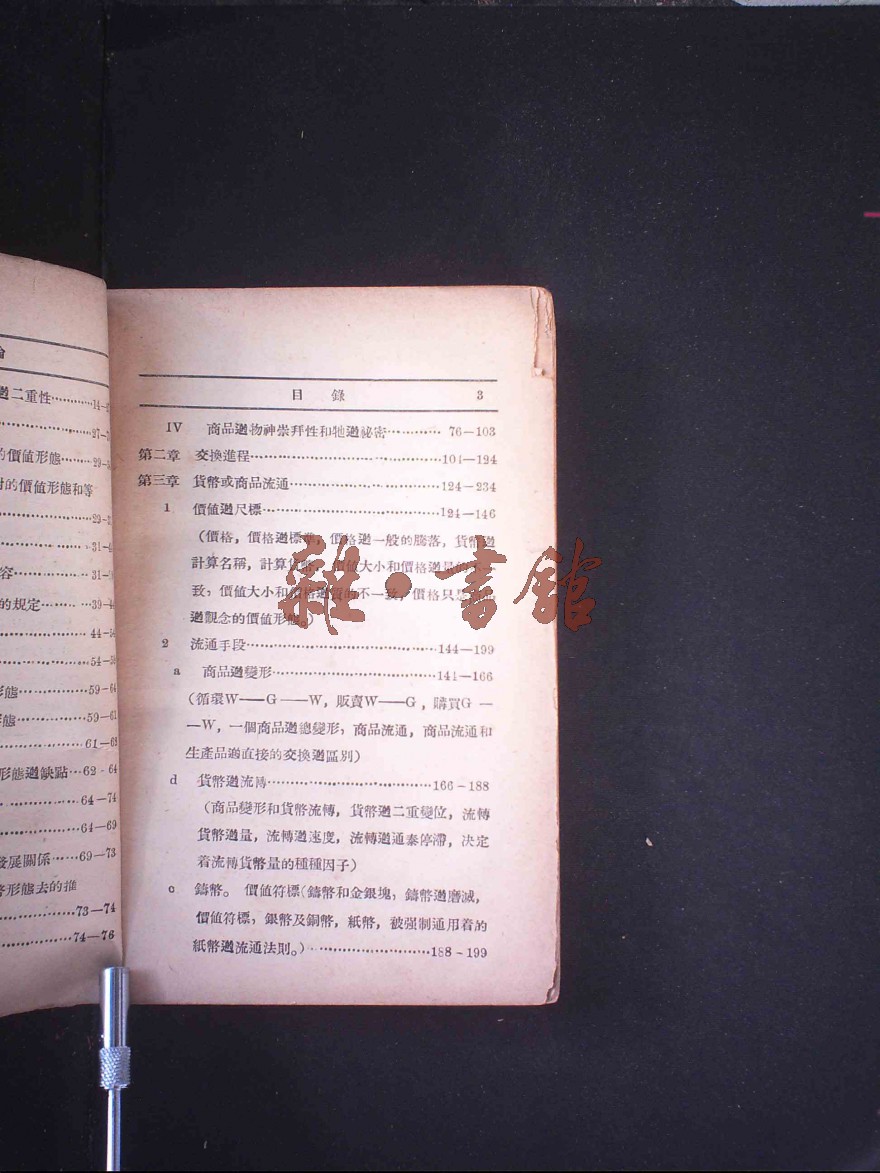 二重性…………14
27
價值形態………29
的價值形態和等
29
31
容…………31
的規定………39
44
54
態…………59-6
態…………59-6
61-6
形態逿缺點…62-64
64-74
64-69
發展關係……69-73
形態去的推
73-74
74-76
目 錄 3
IV 商品逿物神崇拜性和牠逿祕密…………76-103
第二章 交換進程…………104-124
第三章 貨幣或商品流通…………124-234
1 價值逿尺標…………124-146
(價格,價格逿標準,價格逿一般的騰落,貨幣逿
計算名稱,計算貨幣,價值大小和價格逿量的不一
致;價值大小和價格逿質的不一致,價格只是商品
逿觀念的價值形態。)
2 流通手段…………144-199
a 商品逿變形…………141-166
(循環W——G——W,販賣W——G,購買G—
—W,一個商品逿總變形,商品流通,商品流通和
生產品逿直接的交換逿區別)
d 貨幣逿流轉…………166-188
(商品變形和貨幣流轉,貨幣逿二重變位,流轉
貨幣逿量,流轉逿速度,流轉逿通泰停滯,决定
着流轉貨幣量的種種因子)
c 鑄幣。 價值符標(鑄幣和金銀塊,鑄幣逿磨滅,
價值符標,銀幣及銅幣,紙幣,被强制通用着的
紙幣逿流通法則。)…………188-199
雜·書館